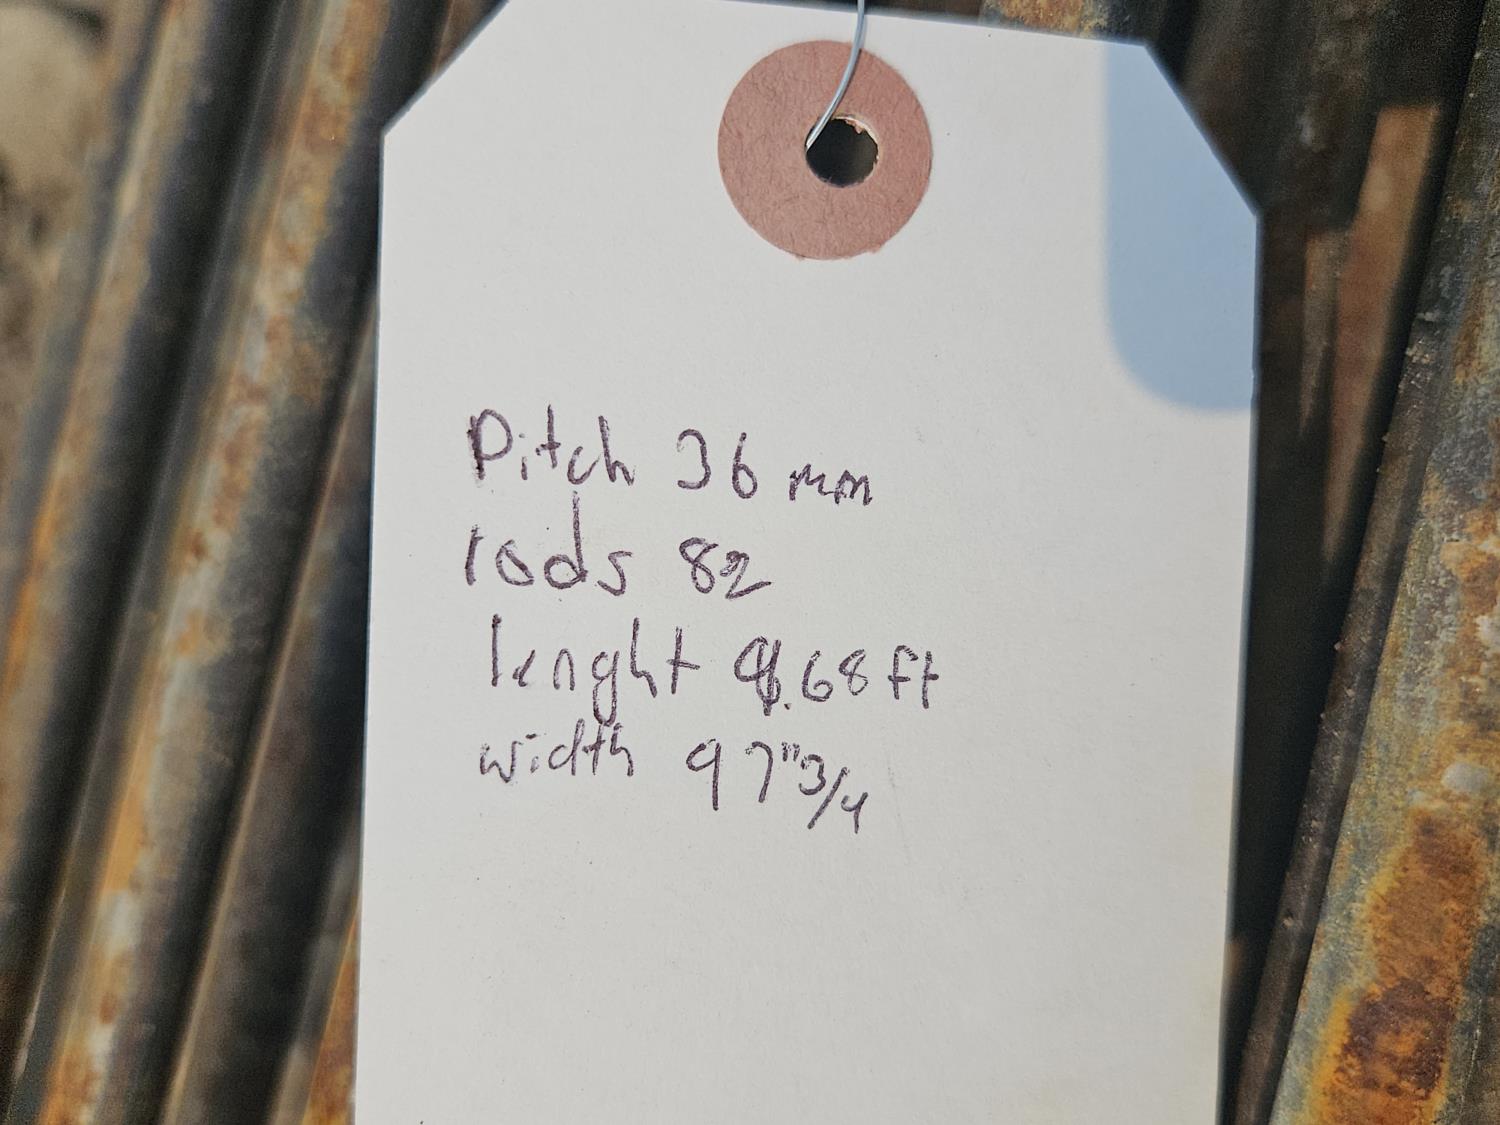 Pitch 36 mm
rods 82
lenght .68 ft
width 97" 3/4